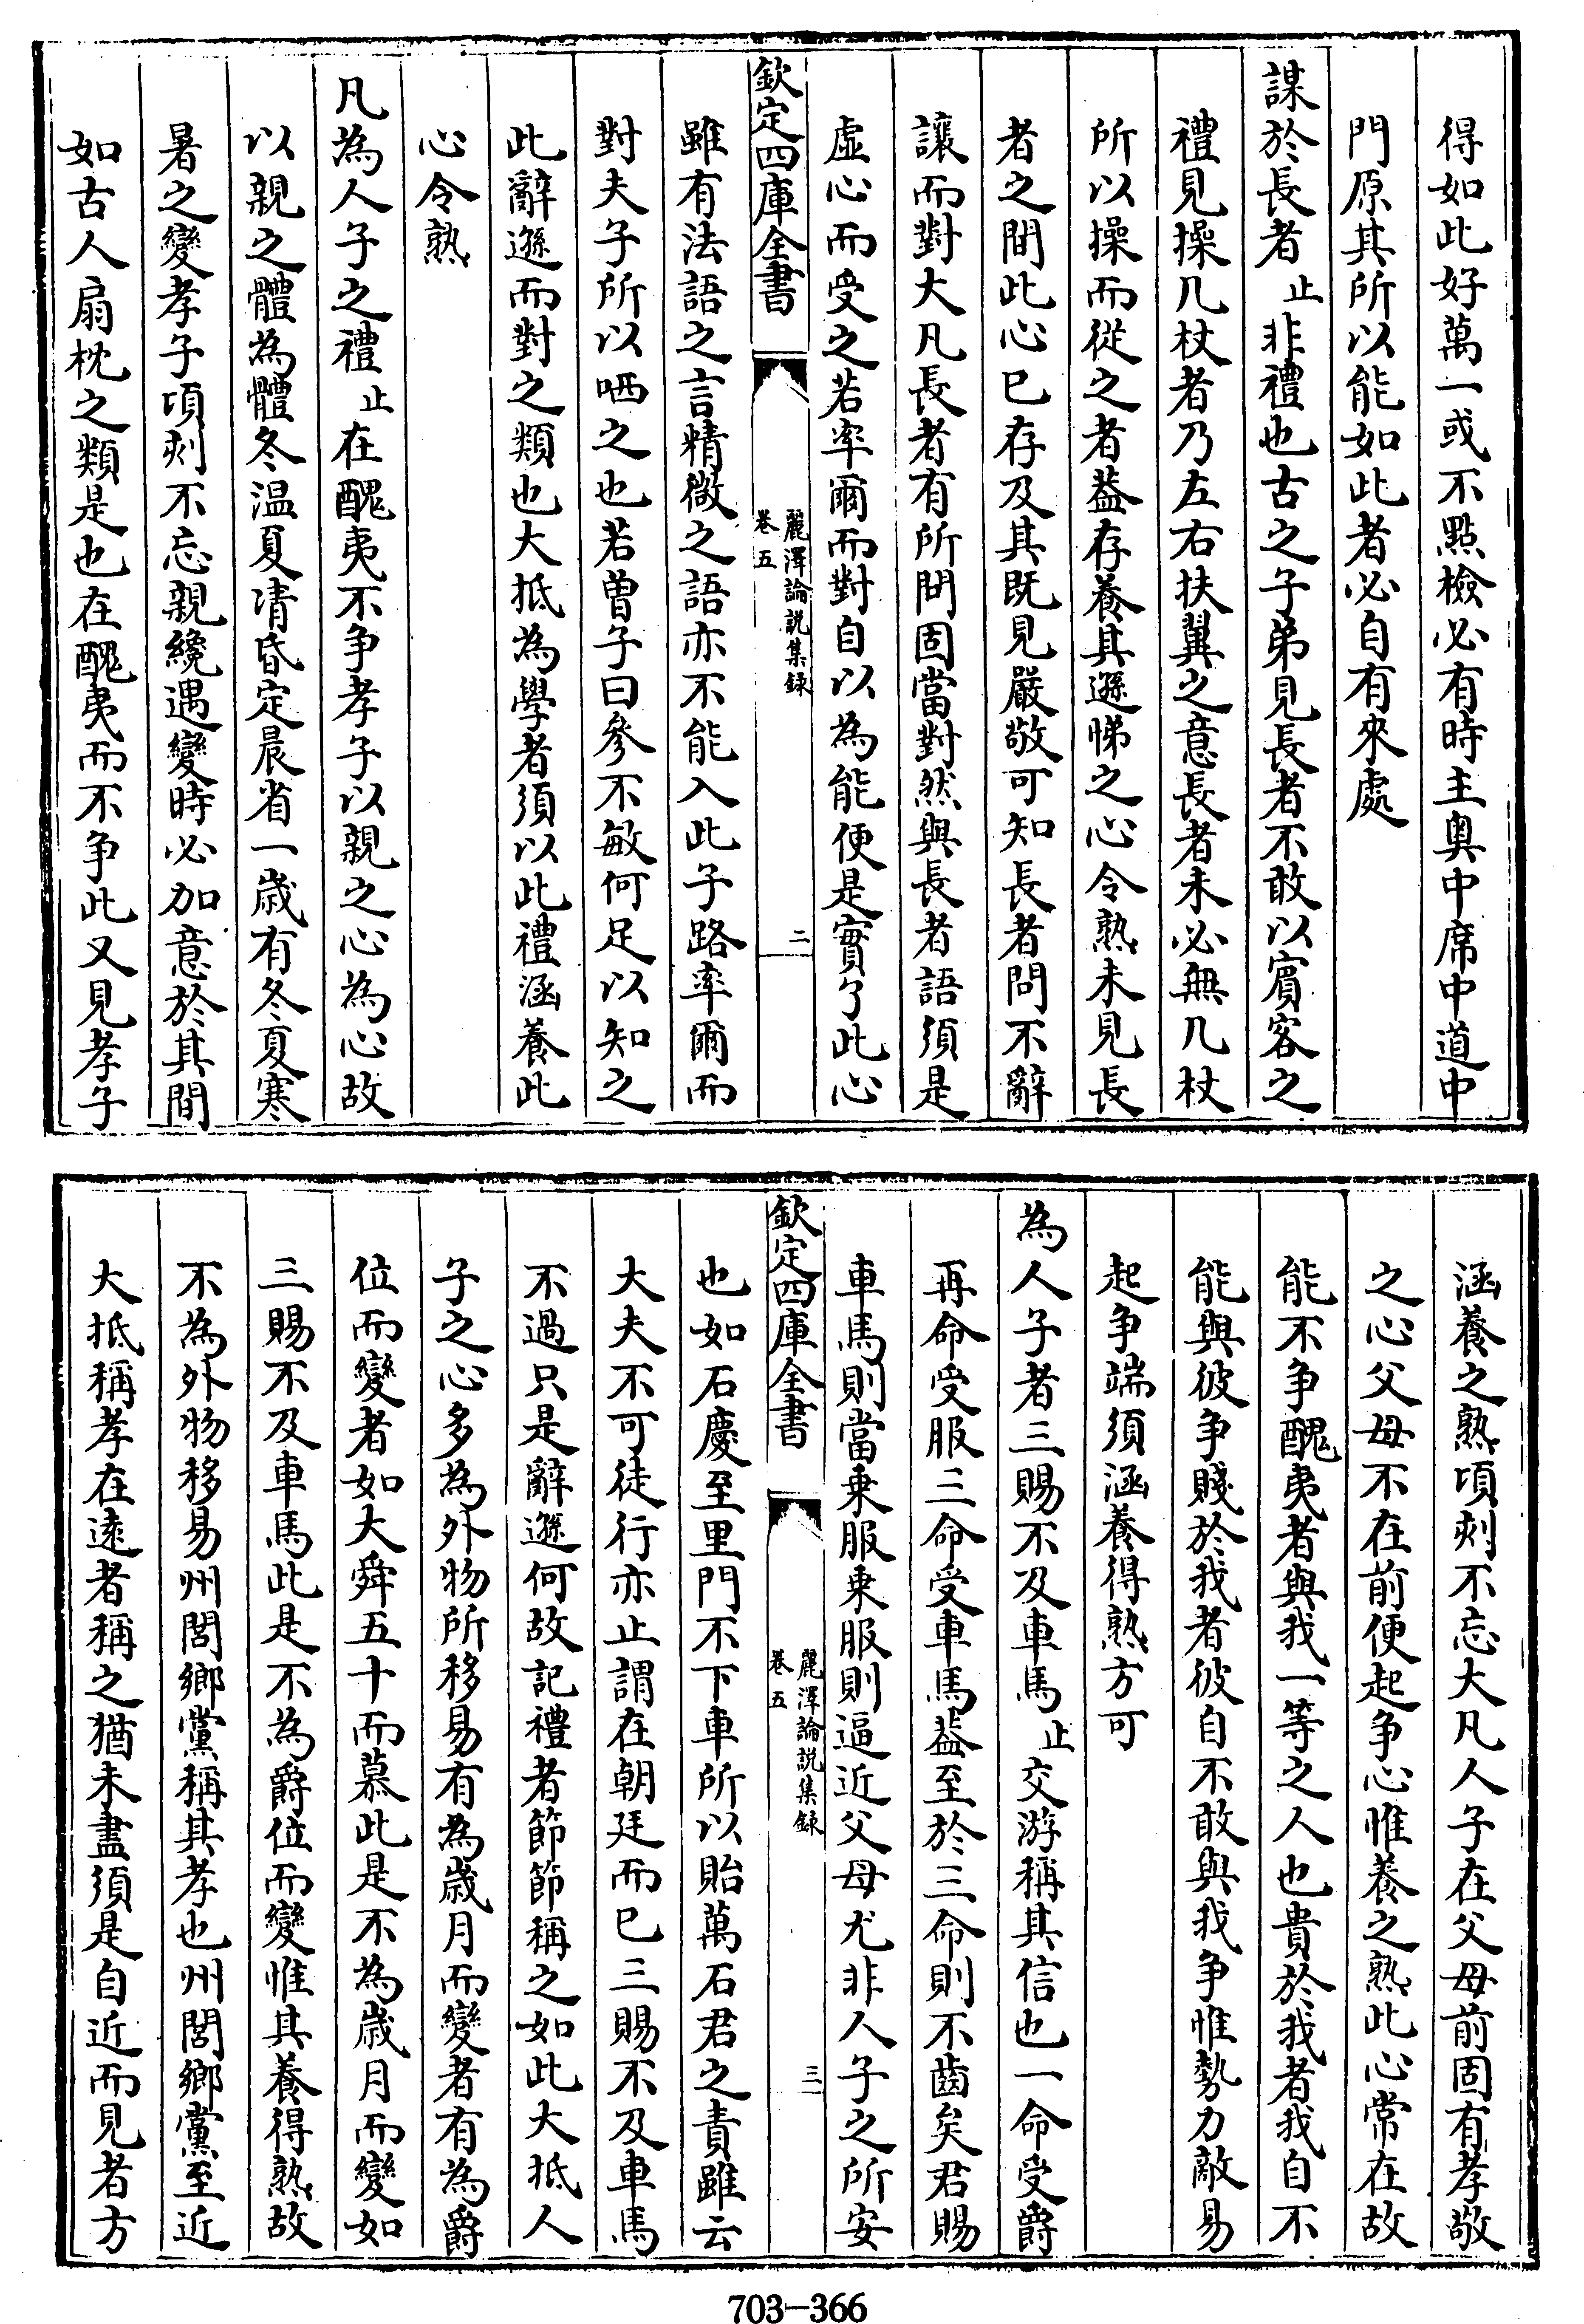 得如此好萬一或不點檢必有時主奥中席中道中
門原其所以能如此者必自有來處
謀於長者止非禮也古之子弟見長者不敢以賓客之
禮見操几杖者乃左右扶翼之意長者未必無几杖
所以操而從之者葢存養其遜悌之心令熟未見長
者之間此心已存及其既見嚴敬可知長者問不辭
讓而對大凡長者有所問固當對然與長者語須是
虚心而受之若率爾而對自以為能便是實了此心
欽定四庫全書
麗澤論説集録
卷五
二
雖有法語之言精微之語亦不能入此子路率爾而
對夫子所以哂之也若曽子曰參不敏何足以知之
此辭遜而對之類也大抵為學者須以此禮涵養此
心令熟
凡為人子之禮止在醜夷不争孝子以親之心為心故
以親之體為體冬温夏凊昏定晨省一歳有冬夏寒
暑之變孝子項刻不忘親纔遇變時必加意於其間
如古人扇枕之類是也在醜夷而不争此又見孝子
涵養之熟項刻不忘大凡人子在父母前固有孝敬
之心父母不在前便起争心惟養之熟此心常在故
能不争醜夷者與我一等之人也貴於我者我自不
能與彼争賤於我者彼自不敢與我争惟勢力敵易
起争端須涵養得熟方可
為人子者三賜不及車馬止交游稱其信也一命受爵
再命受服三命受車馬葢至於三命則不齒矣君賜
車馬則當乗服乗服則逼近父母尤非人子之所安
欽定四庫全書
麗澤論説集録
卷五
三
也如石慶至里門不下車所以貽萬石君之責雖云
大夫不可徒行亦止謂在朝廷而已三賜不及車馬
不過只是辭遜何故記禮者節節稱之如此大抵人
子之心多為外物所移易有為歳月而變者有為爵
位而變者如大舜五十而慕此是不為歳月而變如
三賜不及車馬此是不為爵位而變惟其養得熟故
不為外物移易州閭鄉黨稱其孝也州閭鄉黨至近
大抵稱孝在逺者稱之猶未盡須是自近而見者方
703-366